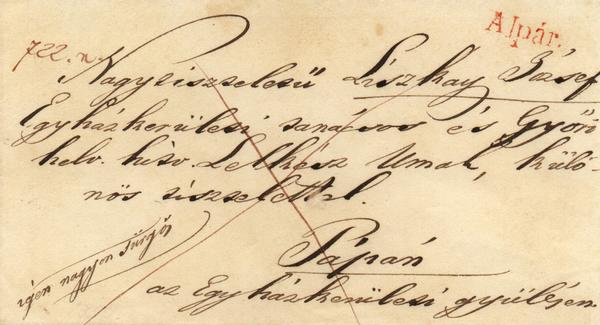 Alpár.
722. n.
Nagytiszteletű Liszkay József
Egyházkerületi tanácsos és Győri
helv. hitv. Lelkész Urnak, külö-
nös tisztelettel.
Pápán
az Egyházkerületi gyűlésen.
igen nagyon sürgős